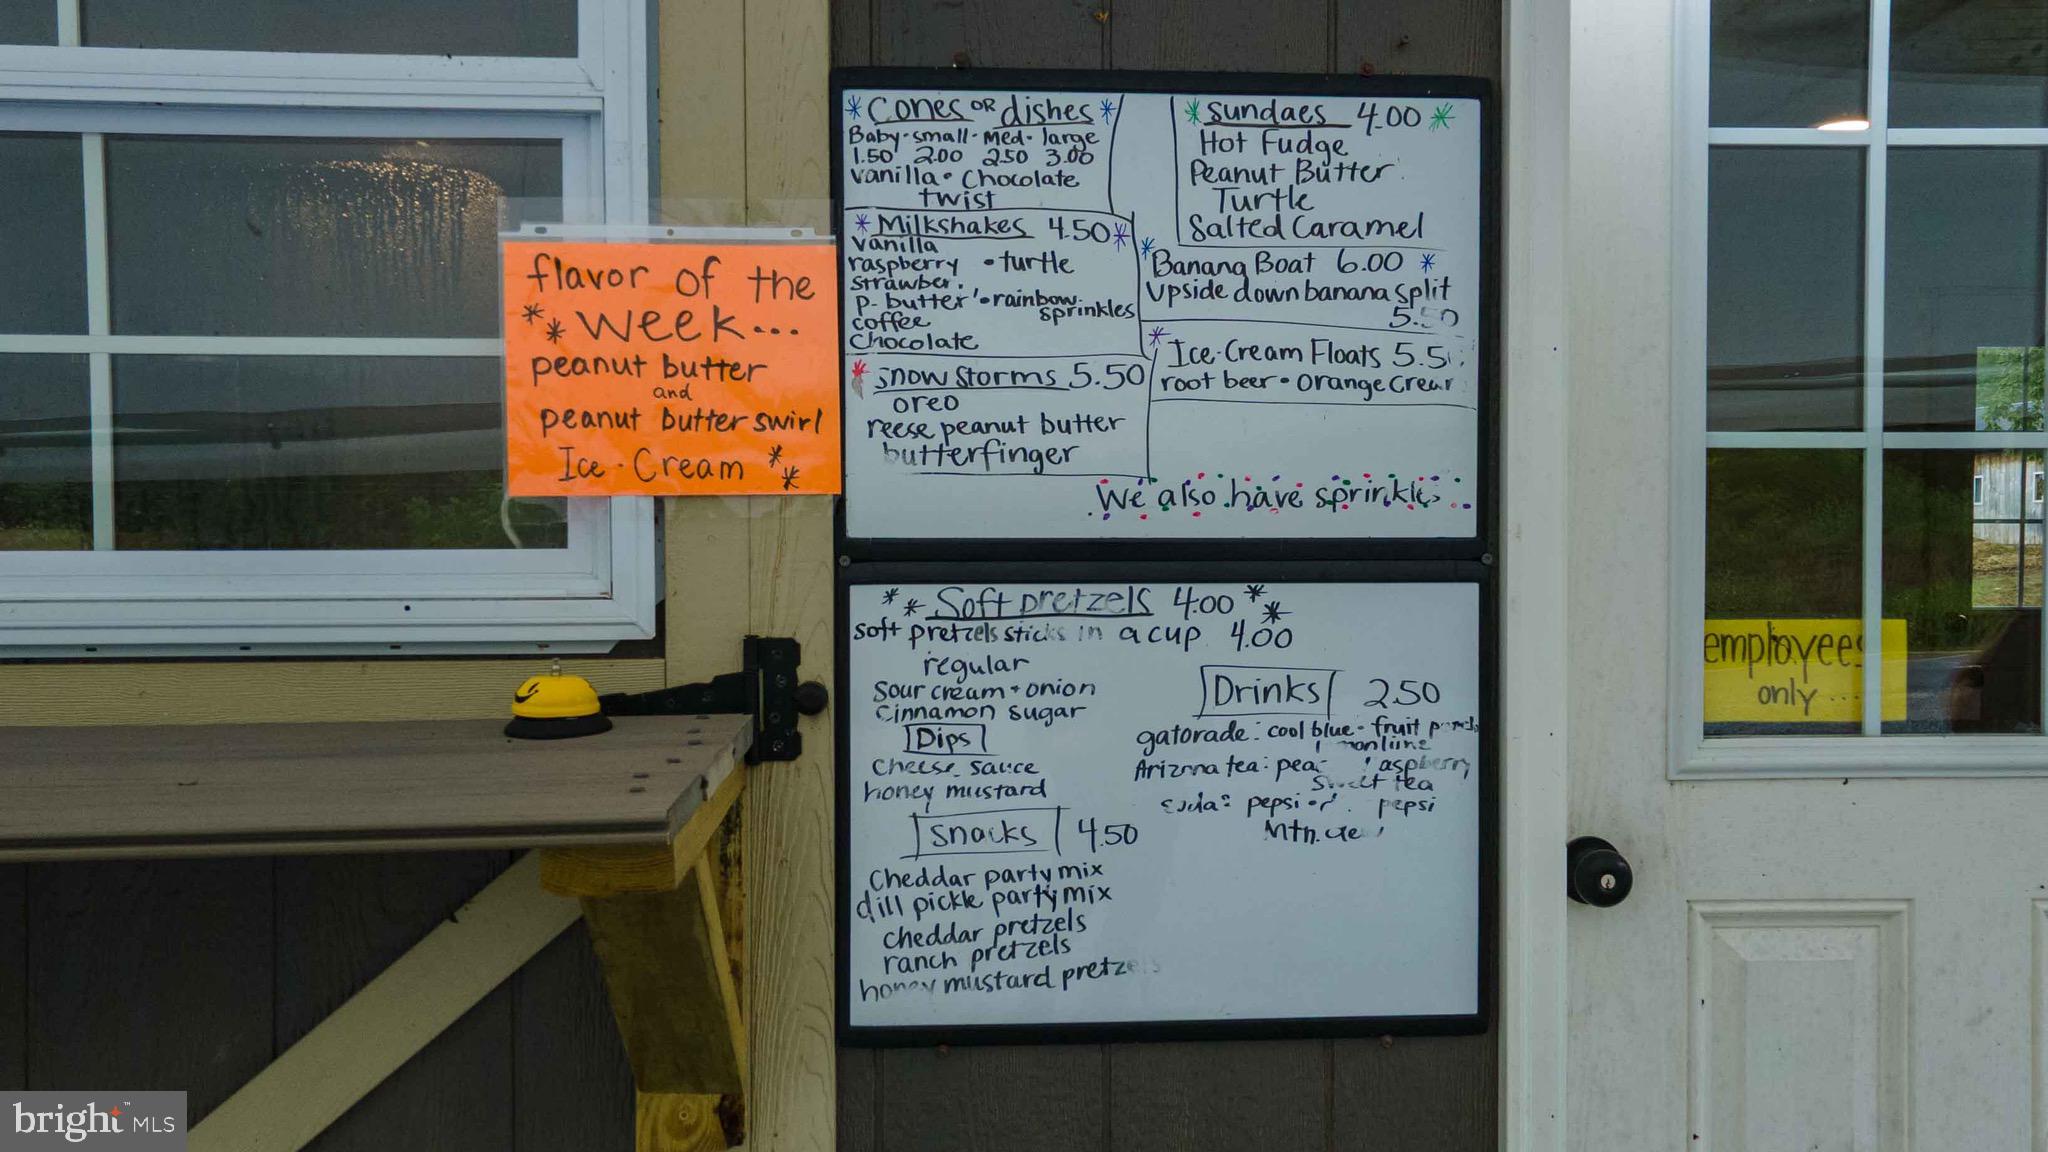 flavor of the
week...
peanut butter
and
peanut butter swirl
Ice-Cream
Cones or dishes
Baby-small-Med-large
1.50 2.00 2.50 3.00
vanilla • Chocolate
twist
Milkshakes 4.50
vanilla
raspberry • turtle
strawber.
p-butter • rainbow
sprinkles
coffee
Chocolate
snow storms 5.50
oreo
reese peanut butter
butterfinger
Sundaes 4.00
Hot Fudge
Peanut Butter
Turtle
Salted Caramel
Banana Boat 6.00
Upside down banana split
5.50
Ice-Cream Floats
root beer • orange
We also have sprinkles
Soft pretzels 4.00
soft pretzels sticks in a cup 4.00
regular
sour cream + onion
cinnamon sugar
Dips
cheese sauce
honey mustard
Snacks 4.50
Cheddar party mix
dill pickle party mix
cheddar pretzels
ranch pretzels
honey mustard
Drinks 2.50
gatorade: cool blue - fruit
Arizona tea:
tea
pepsi pepsi
Mtn.
employees
only...
bright MLS